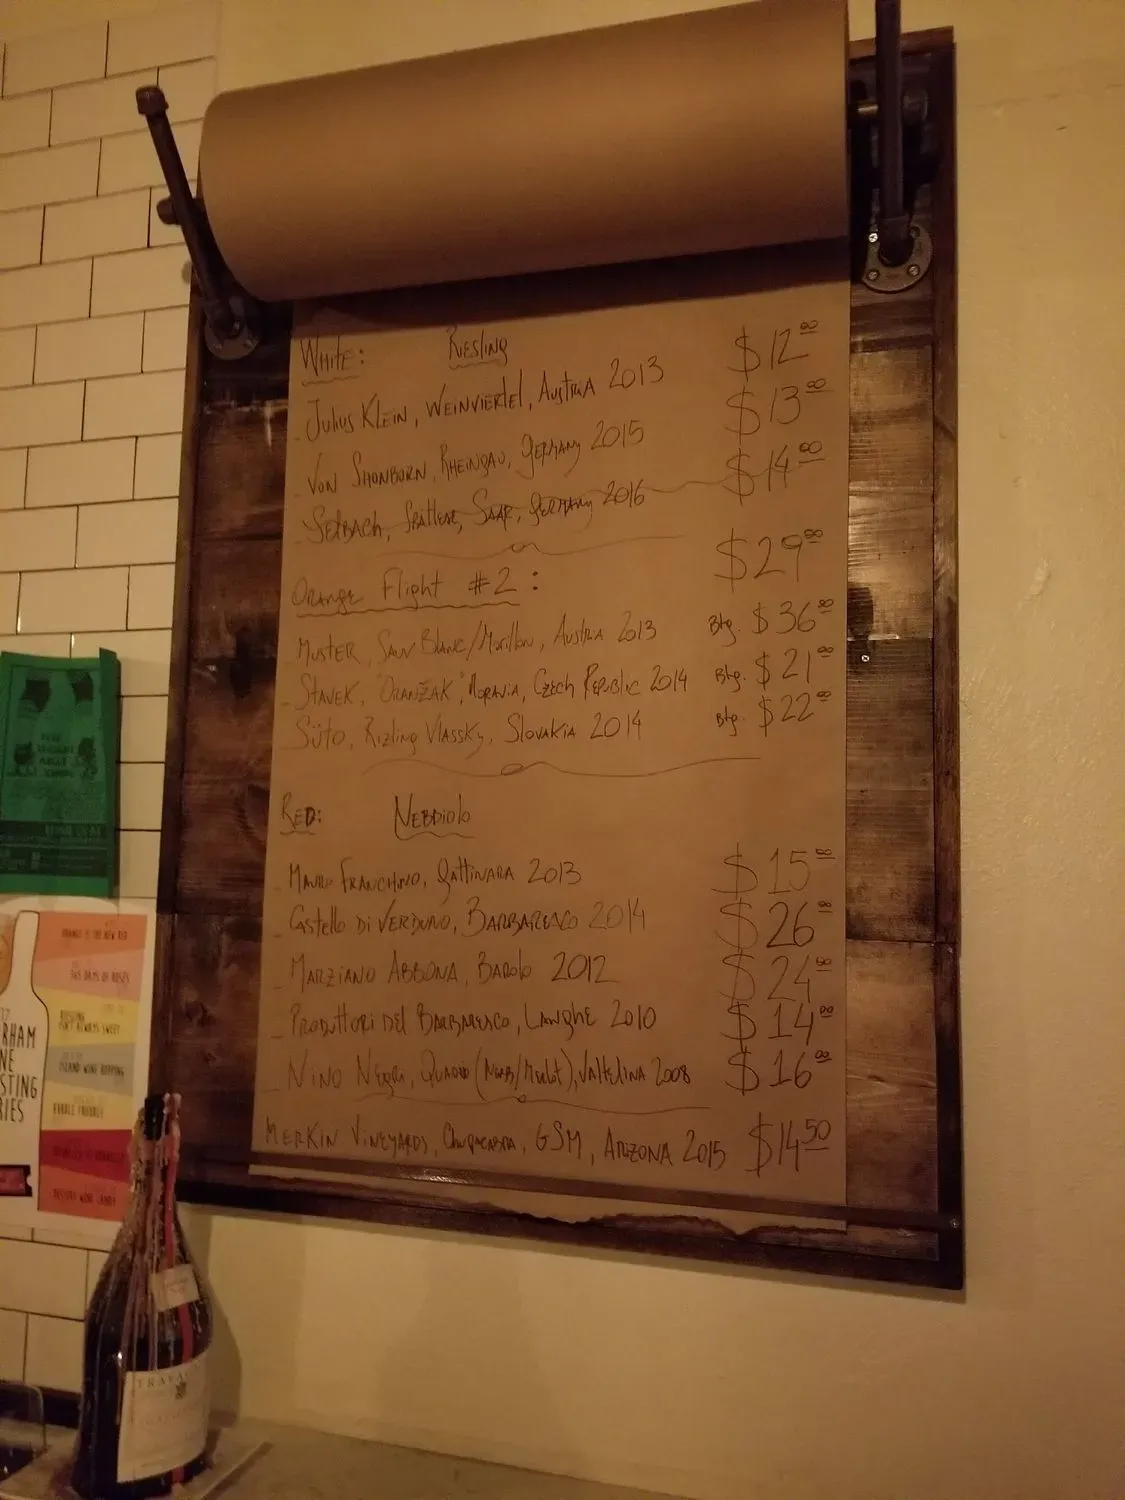 WHITE: RIESLING
- Julius Klein, Weinviertel, Austria 2013 $12.00
- Von Shonborn, Rheingau, Germany 2015 $13.00
- Selbach, Spätlese, Saar, Germany 2016 $14.00
Orange Flight #2: $29.00
- Muster, Sauv Blanc/Morillon, Austria 2013 Btg. $36.00
- Stavek, "Oranžak", Moravia, Czech Republic 2014 Btg. $21.00
- Süto, Rizling Vlassky, Slovakia 2014 Btg. $22.00
RED: NEBDIOLO
- Mauro Franchino, Gattinara 2013 $15.00
- Castello di Verduno, Barbaresco 2014 $26.00
- Marziano Abbona, Barolo 2012 $24.00
- Produttori del Barbaresco, Langhe 2010 $14.00
- Nino Negri, Quadrio (Nebb/Merlot), Valtelina 2008 $16.00
Merkin Vineyards, Chupacabra, GSM, Arizona 2015 $14.50
ORANGE IS THE NEW RED
365 DAYS OF ROSÉS
RIESLING
ISN'T ALWAYS SWEET
ISLAND WINE HOPPING
RHAM
NE
STING
RIES